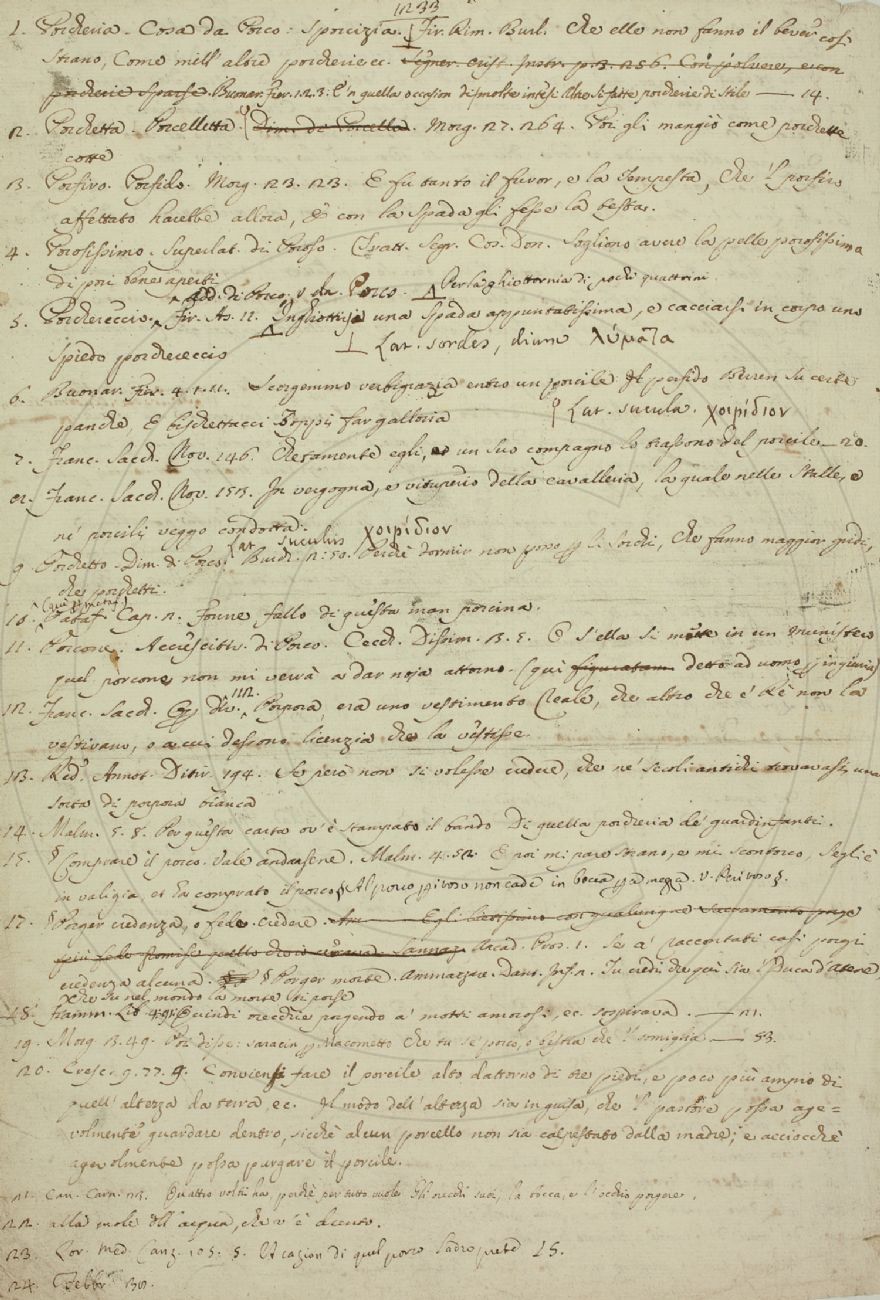 1233
1. Porcheria. Cosa da Porco: Sporcizia. Fir. Rim. Burl. Che elle non fanno il bever così
strano, Come mill' altre porcherie ec. Segner. Crist. Instr. p. 3. 25 6. Con polvere, e con
porcherie sparse. Buonar. Fier. 1. 2. 3. E 'n quella occasion di molte intesi Altre sì fatte porcherie di stile — 14.
2. Porchetta. Porcelletta. Dim. di Porcella. Morg. 27. 264. Poi gli mangiò come porchette
cotte
3. Porfiro. Porfido. Morg. 23. 23. E fu tanto il furor, e la tempesta, Che 'l porfiro
affettato harebbe allora, E con la spada gli fesse la testa.
4. Porosissimo. Superlat. di Poroso. Tratt. Segr. Cos. Don. Sogliono avere la pelle porosissima
di pori bene aperti
Add. di Porco, da Porco. Per la ghiottornia di pochi quattrini
5. Porchereccio. Fir. As. 12. Inghiottirsi una spada appuntatissima, e cacciarsi in corpo uno
spiedo porchereccio Lat. sordes, dium λύματα
6. Buonar. Fier. 4. 1. 11. Scorgemmo verbigrazia entro un porcile Il perfido Beren su certe
panche, E bischettacci far galloria Lat. sucula. χοιρίδιον
7. Franc. Sacch. Nov. 146. Chetamente egli, e un suo compagno lo trassono del porcile — 20.
8. Franc. Sacch. Nov. 153. In vergogna, e vituperio della cavalleria, la quale nelle stalle, e
ne' porcili veggo condotta.
Lat. suculus χοιρίδιον
9. Porchetto. Dim. di Porco. Burch. 2: 50. Perchè dormir non posso pe li sorchi, Che fanno maggior gridi,
che porchetti.
(qui p metaf.)
10. Pataf. Cap. 2. Fonne fallo di questa man porcina.
11. Porcone. Accrescit. di Porco. Cecch. Dissim. 3. 5. E s'ella si mette in un munistero
quel porcone non mi verrà a dar noja attorno. (qui figuratam. detto ad uomo p ingiuria)
12. Franc. Sacch. Op. Div. 112. Porpora era uno vestimento Reale, che altro che e' Rè non la
vestivano, o a cui dessono licenzia che la vestisse
13. Red. Annot. Ditir. 194. Se però non si volesse credere, che ne' secoli antichi trovavasi, una
sorta di porpora bianca
14. Malm. 5. 8. Per questa carta ov' è stampato il bando Di quella porcheria de' guardinfanti.
15. § Comprare il porco. Vale andarsene. Malm. 4. 52. E poi mi pare strano, e mi scontorco, Segli è
in valigia, et ha comprato il porco
17. § Porger credenza, o fede. Credere. Egli lietissimo con qualunque Sacramento porge
Sannaz. Arcad. Pros. 1. Se a' raccontati casi porgi
credenza alcuna. § Porger morte. Ammazzare. Dant. Inf. 12. Tu credi che qui sia 'l Duca d'Atene,
Che su nel mondo la morte ti porse
18. Fiamm. Lib. 4. 91. Quindi orecchie porgendo a' motti amorosi, ec. sospirava. — 21.
19. Morg. 13. 49. Poi disse: saracin p Macometto Che tu se' porco, e bestia che 'l somiglia — 53.
20. Cresc. 9. 77. 9. Conviensi fare il porcile alto dattorno di tre piedi, e poco più ampio di
quell' altezza da terra, ec. Il modo dell' altezza sia in guisa, che 'l pastore possa age=
volmente guardare dentro, sicchè alcun porcello non sia calpestato dalla madre; e acciocchè
agevolmente possa purgare il porcile.
21. Can. Carn. 125. Quattro volti ha, perchè per tutto vuole Gli orecchi suoi, la bocca, e l'occhio porgere.
22. alla mole dell' acqua, che v'è drento.
23. Lor. Med. Canz. 105. 5. Et cagion di quel porco Ladro prete 15.
24. Febbr. 30.